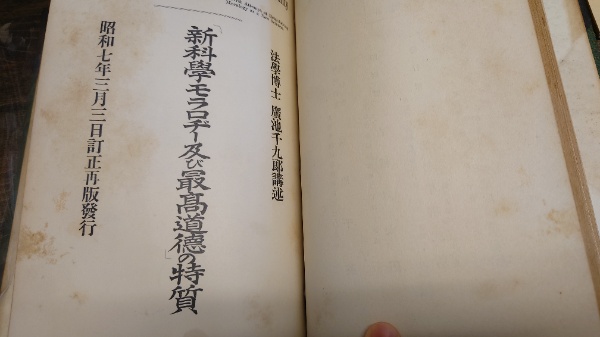 法學博士 廣池千九郎講述
「新科學モラロヂー及び最高道德」の特質
昭和七年三月三日訂正再版發行